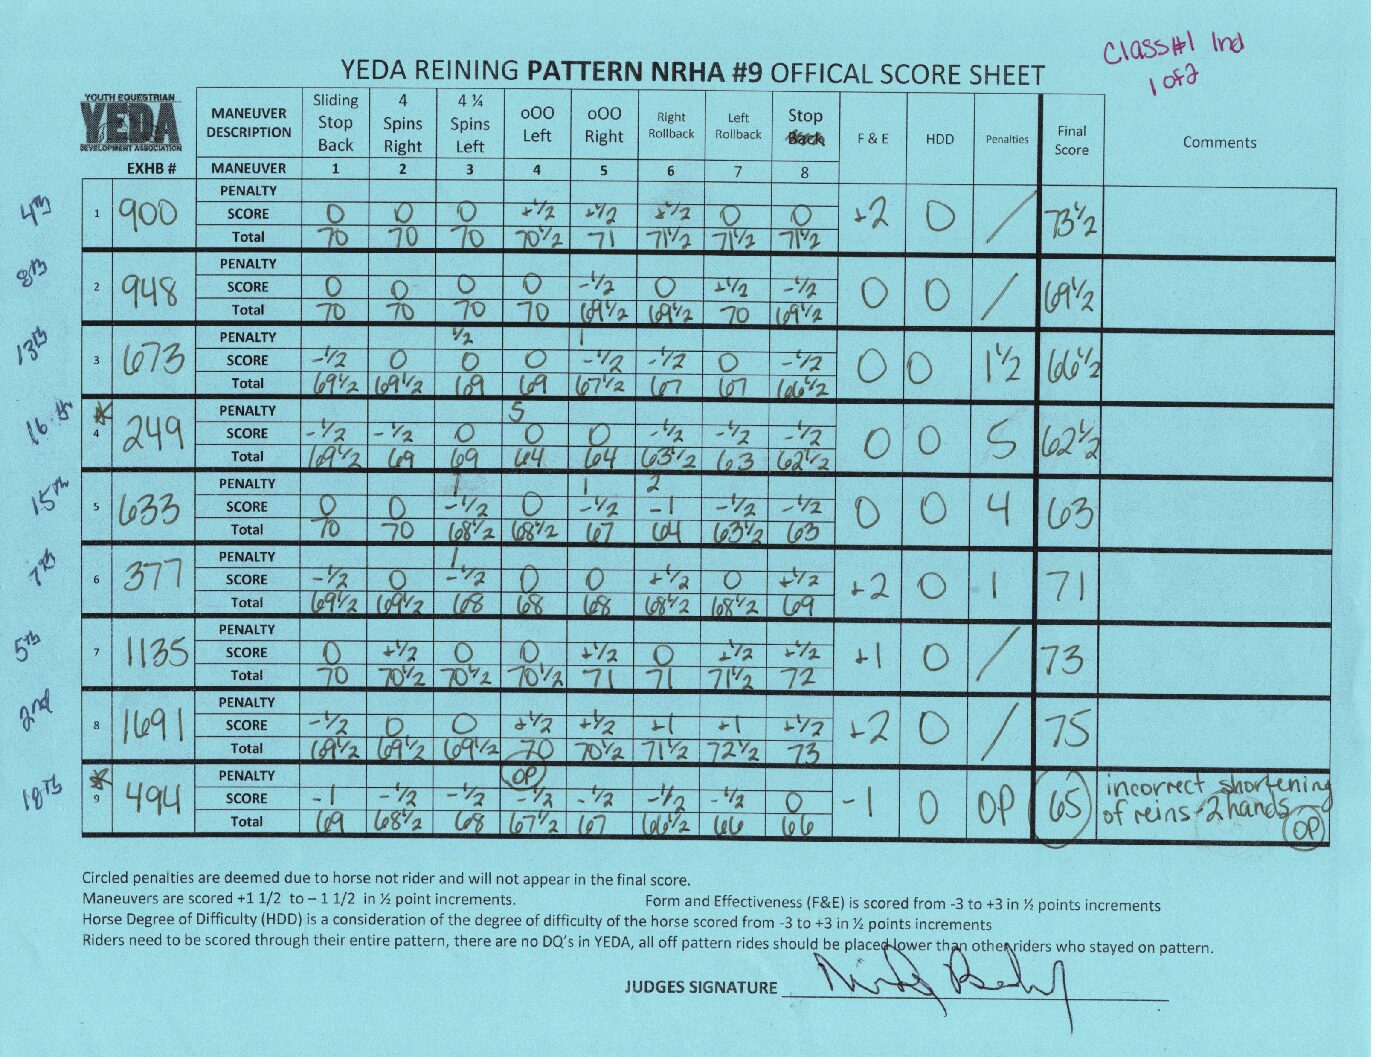 Class#1 Ind
1 of 2
YEDA REINING PATTERN NRHA #9 OFFICAL SCORE SHEET
YOUTH EQUESTRIAN
YEDA
DEVELOPMENT ASSOCIATION
MANEUVER DESCRIPTION Sliding Stop Back 4 Spins Right 4 ¼ Spins Left oOO Left oOO Right Right Rollback Left Rollback Stop Back F & E HDD Penalties Final Score Comments
EXHB # MANEUVER 1 2 3 4 5 6 7 8
PENALTY
4th 1 900 SCORE 0 0 0 +½ +½ +½ 0 0 +2 0 / 73½
Total 70 70 70 70½ 71 71½ 71½ 71½
PENALTY
8th 2 948 SCORE 0 0 0 0 -½ 0 +½ -½ 0 0 / 69½
Total 70 70 70 70 69½ 69½ 70 69½
PENALTY ½ 1
13th 3 673 SCORE -½ 0 0 0 -½ -½ 0 -½ 0 0 1½ 66½
Total 69½ 69½ 69 69 67½ 67 67 66½
PENALTY 5
16th * 4 249 SCORE -½ -½ 0 0 0 -½ -½ -½ 0 0 5 62½
Total 69½ 69 69 64 64 63½ 63 62½
PENALTY 1 1 2
15th 5 633 SCORE 0 0 -½ 0 -½ -1 -½ -½ 0 0 4 63
Total 70 70 68½ 68½ 67 64 63½ 63
PENALTY 1
7th 6 377 SCORE -½ 0 -½ 0 0 +½ 0 +½ +2 0 1 71
Total 69½ 69½ 68 68 68 68½ 68½ 69
PENALTY
5th 7 1135 SCORE 0 +½ 0 0 +½ 0 +½ +½ +1 0 / 73
Total 70 70½ 70½ 70½ 71 71 71½ 72
PENALTY
2nd 8 1691 SCORE -½ 0 0 +½ +½ +1 +1 +½ +2 0 / 75
Total 69½ 69½ 69½ 70 70½ 71½ 72½ 73
PENALTY OP
18th * 9 494 SCORE -1 -½ -½ -½ -½ -½ -½ 0 -1 0 OP 65 incorrect shortening of reins - 2 hands OP
Total 69 68½ 68 67½ 67 66½ 66 66
Circled penalties are deemed due to horse not rider and will not appear in the final score.
Maneuvers are scored +1 1/2 to – 1 1/2 in ½ point increments. Form and Effectiveness (F&E) is scored from -3 to +3 in ½ points increments
Horse Degree of Difficulty (HDD) is a consideration of the degree of difficulty of the horse scored from -3 to +3 in ½ points increments
Riders need to be scored through their entire pattern, there are no DQ's in YEDA, all off pattern rides should be placed lower than other riders who stayed on pattern.
JUDGES SIGNATURE